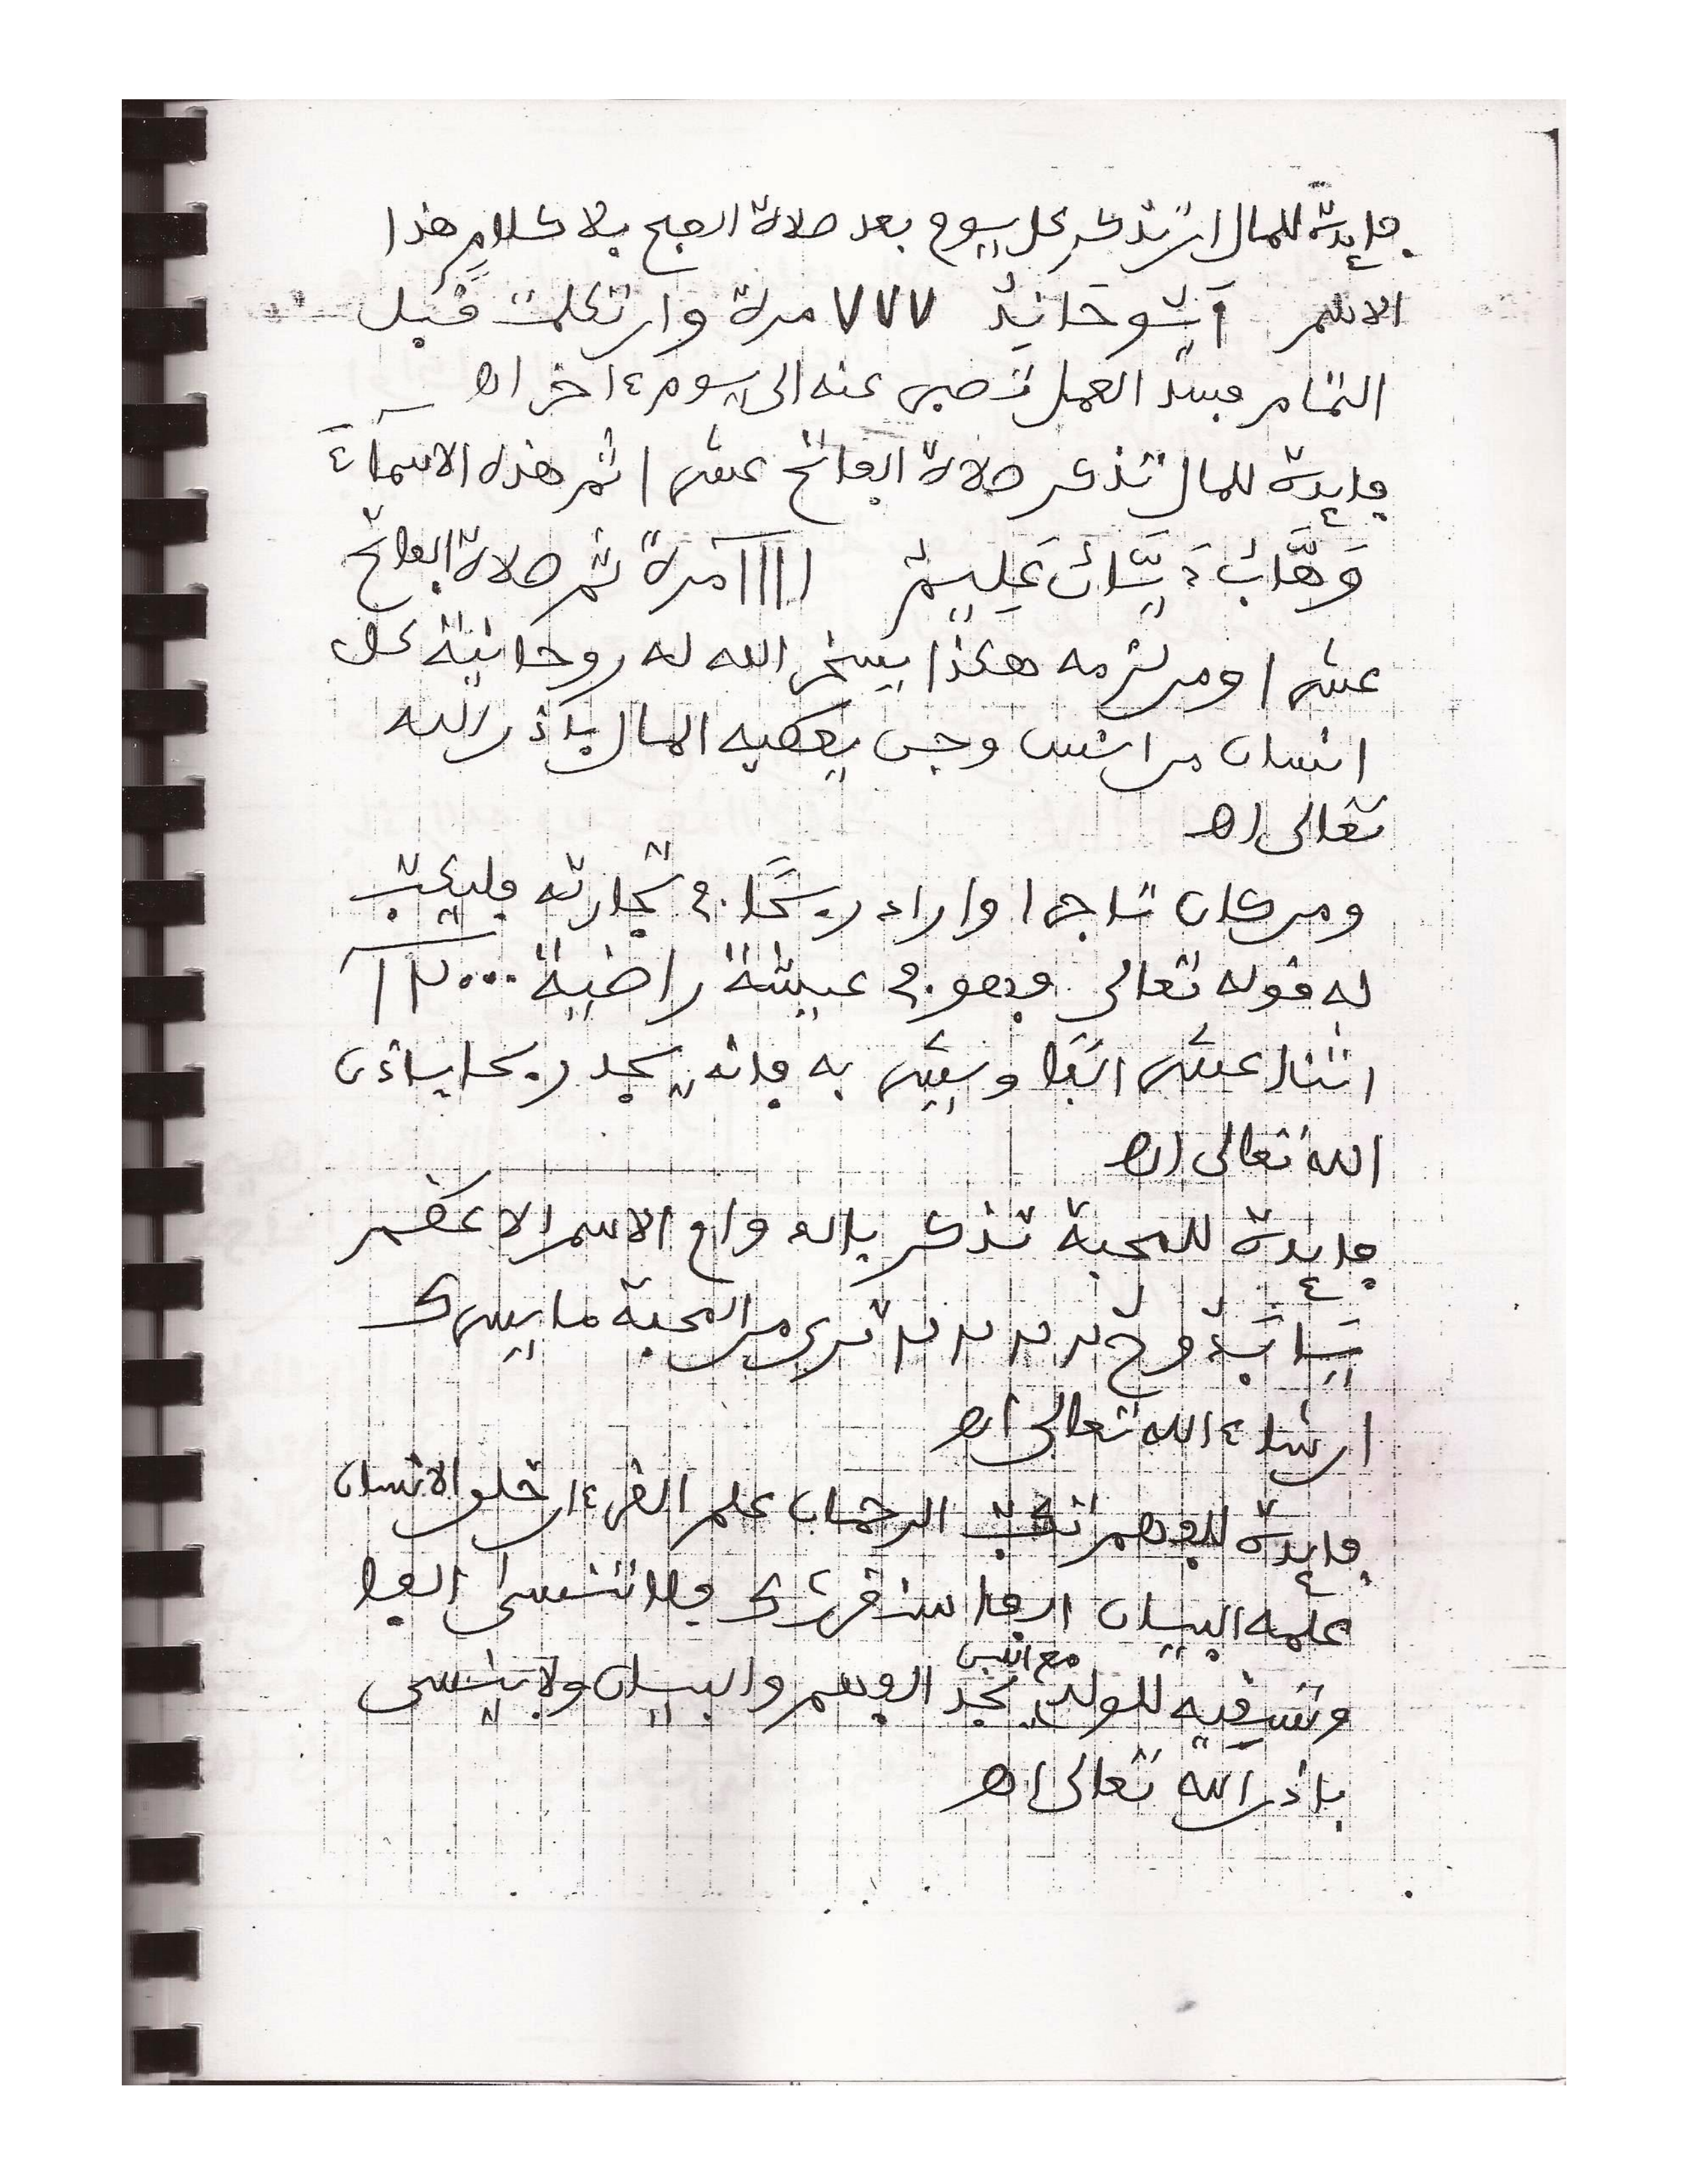 فايدة للمال ان تذكر كل يوم بعد صلاة الصبح بلا كلام هذا
الاسم آشو حانيد ٧٧٧ مرة وان تكلمت قبل
التمام فسد العمل تصبر عنه الى يوم ءاخر اه
فايدة للمال تذكر صلاة الفاتح عشرا ثم هذه الاسماء
وَهَّابٌ دَيَّانٌ عَلِيمٌ ١١١١ مرة ثم صلاة الفاتح
عشرا ومن لزمه هكذا يسخر الله له روحانية كل
انسان من انس وجن يعطيه المال باذن الله
تعالى اه
ومن كان تاجرا واراد ربحا في تجارته فليكتب
له قوله تعالى فهو في عيشة راضية ١٢٠٠٠
اثنا عشر الفا وسيتر به فانه يجد ربحا باذن
الله تعالى اه
فايدة للمحبة تذكر الاسم الاعظم
ترى من المحبة ما يسرك
ان شاء الله تعالى اه
فايدة للفهم تكتب الرحمان علم القرءان خلق الانسان
علمه البيان الفا سنقرئك فلا تنسى الفا
وتسقيه للولد مع اللبن يجد الفهم والبيان ولا ينسى
باذن الله تعالى اه